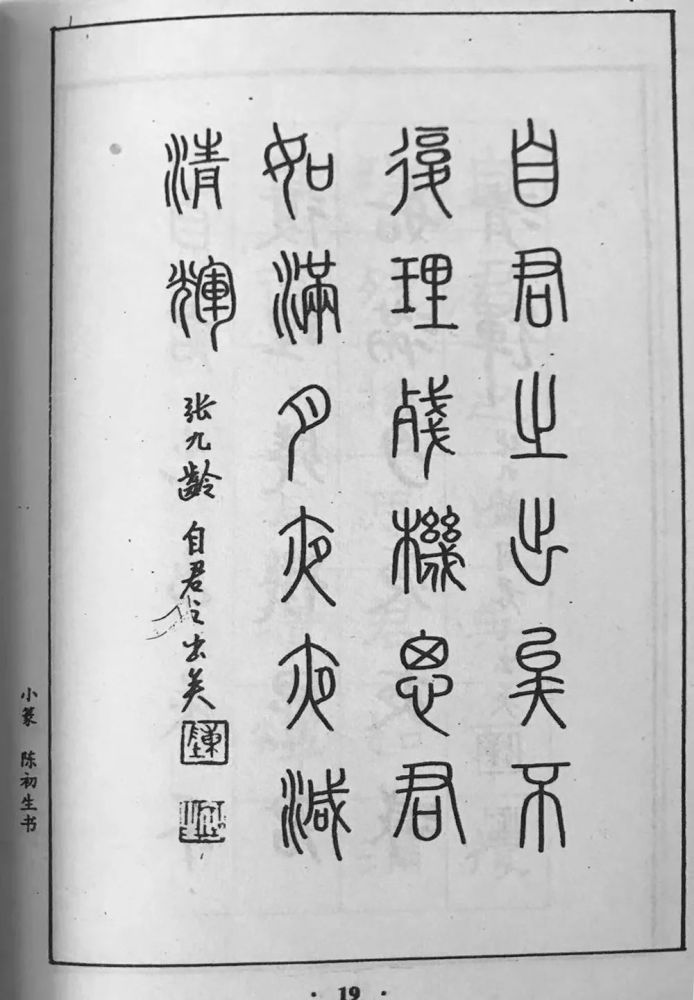 自君之出矣不
復理殘機思君
如滿月夜夜減
清輝
张九齡 自君之出矣
小篆 陈初生书
· 19 ·